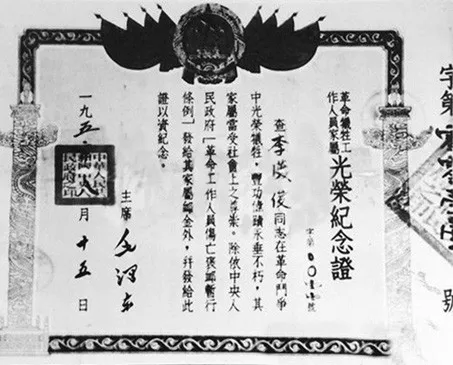 字第 號
革命犧牲工
作人員家屬
光榮紀念證
字第 號
查李 俊同志在革命鬥爭
中光榮犧牲，豐功偉績永垂不朽，其
家屬當受社會上之尊崇。除依中央人
民政府「革命工作人員傷亡褒卹暫行
條例」發給其家屬卹金外，并發給此
證以資紀念。
主席 毛澤东
一九五 月十五日